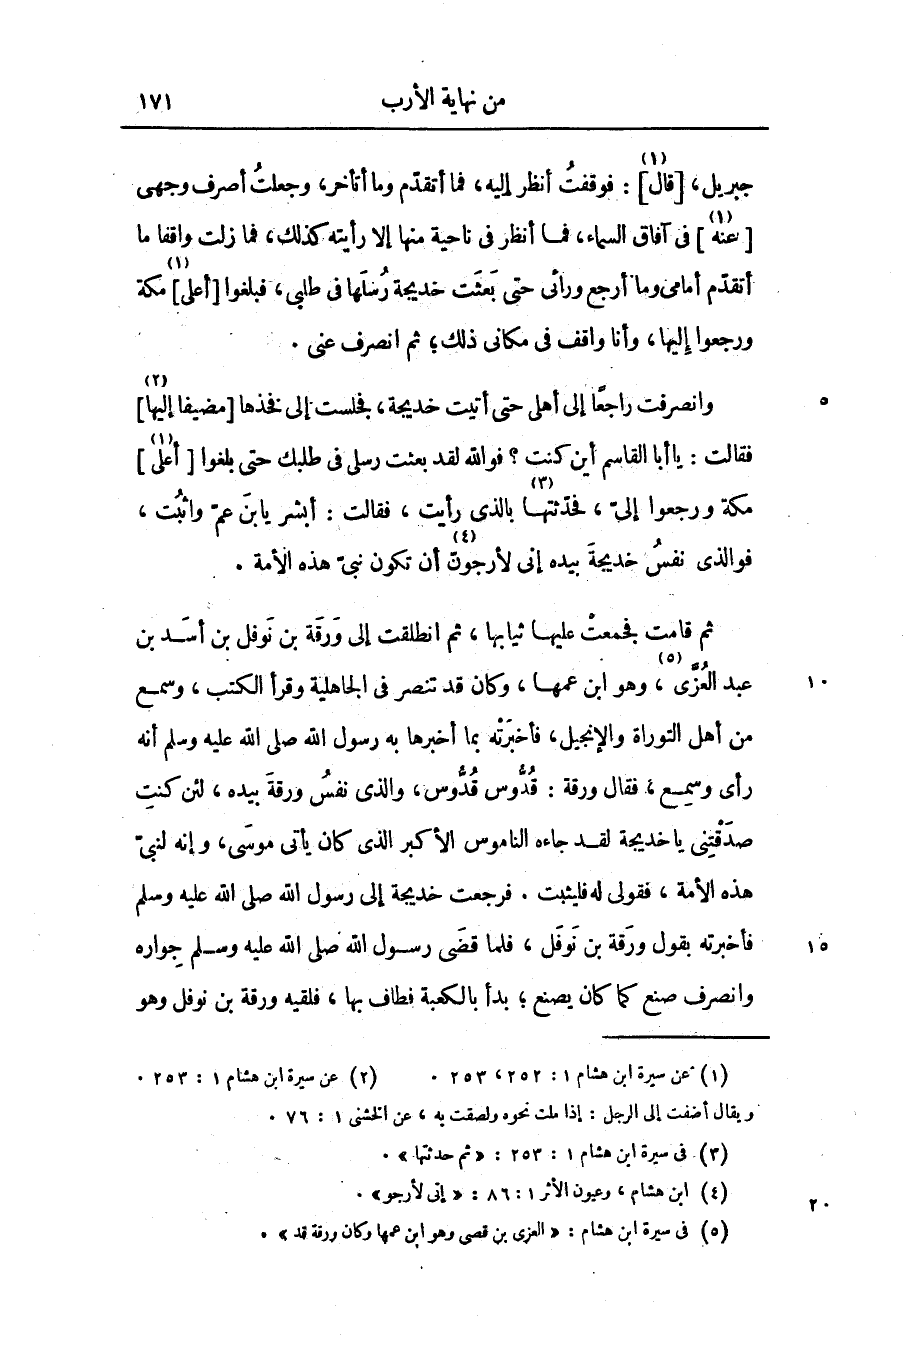 من نهاية الأرب ١٧١
جبريل، [قال](١) : فوقفتُ أنظر إليه، فما أتقدّم وما أتأخر، وجعلتُ أصرف وجهى
[عنه](١) فى آفاق السماء، فما أنظر فى ناحية منها إلا رأيته كذلك، فما زلت واقفا ما
أتقدّم أمامى وما أرجع ورائى حتى بَعثَت خديجة رُسلَها فى طلبى، فبلغوا [أعلى](١) مكة
ورجعوا إليها، وأنا واقف فى مكانى ذلك؛ ثم انصرف عنى .
وانصرفت راجعًا إلى أهلى حتى أتيت خديجة، فجلست إلى فخذها [مضيفا إليها](٢) ٥
فقالت : يا أبا القاسم أين كنت ؟ فوالله لقد بعثت رسلى فى طلبك حتى بلغوا [أعلى](١)
مكة ورجعوا إلىّ ، فحدّثتها(٣) بالذى رأيت ، فقالت : أبشر يابنَ عمّ واثبُت ،
فوالذى نفسُ خديجةَ بيده إنى لأرجونّ(٤) أن تكون نبىّ هذه الأمة .
ثم قامت فجمعتْ عليها ثيابها ، ثم انطلقت إلى وَرَقَة بن نَوفل بن أسَد بن
عبد العُزَّى(٥) ، وهو ابن عمها ، وكان قد تنصر فى الجاهلية وقرأ الكتب ، وسمع ١٠
من أهل التوراة والإنجيل، فأخبرَتْه بما أخبرها به رسول الله صلى الله عليه وسلم أنه
رأى وسمع ؛ فقال ورقة : قُدُّوس قُدُّوس، والذى نفسُ ورقةَ بيده ، لئن كنتِ
صدَقْتِنى يا خديجة لقد جاءه الناموس الأكبر الذى كان يأتى موسَى، وإنه لنبىّ
هذه الأمة ، فقولى له فليثبت . فرجعت خديجة إلى رسول الله صلى الله عليه وسلم
فأخبرته بقول ورَقة بن نَوفَل ، فلما قضَى رسول الله صلى الله عليه وسلم جِواره ١٥
وانصرف صنع كما كان يصنع ؛ بدأ بالكعبة فطاف بها ، فلقيه ورقة بن نوفل وهو
(١) عن سيرة ابن هشام ١ : ٢٥٢، ٢٥٣ . (٢) عن سيرة ابن هشام ١ : ٢٥٣ .
ويقال أضفت إلى الرجل : إذا ملت نحوه ولصقت به ، عن الخشنى ١ : ٧٦ .
(٣) فى سيرة ابن هشام ١ : ٢٥٣ : « ثم حدثتها » .
(٤) ابن هشام ، وعيون الأثر ١ : ٨٦ : « إنى لأرجو» . ٢٠
(٥) فى سيرة ابن هشام : « العزى بن قصى وهو ابن عمها وكان ورقة قد » .